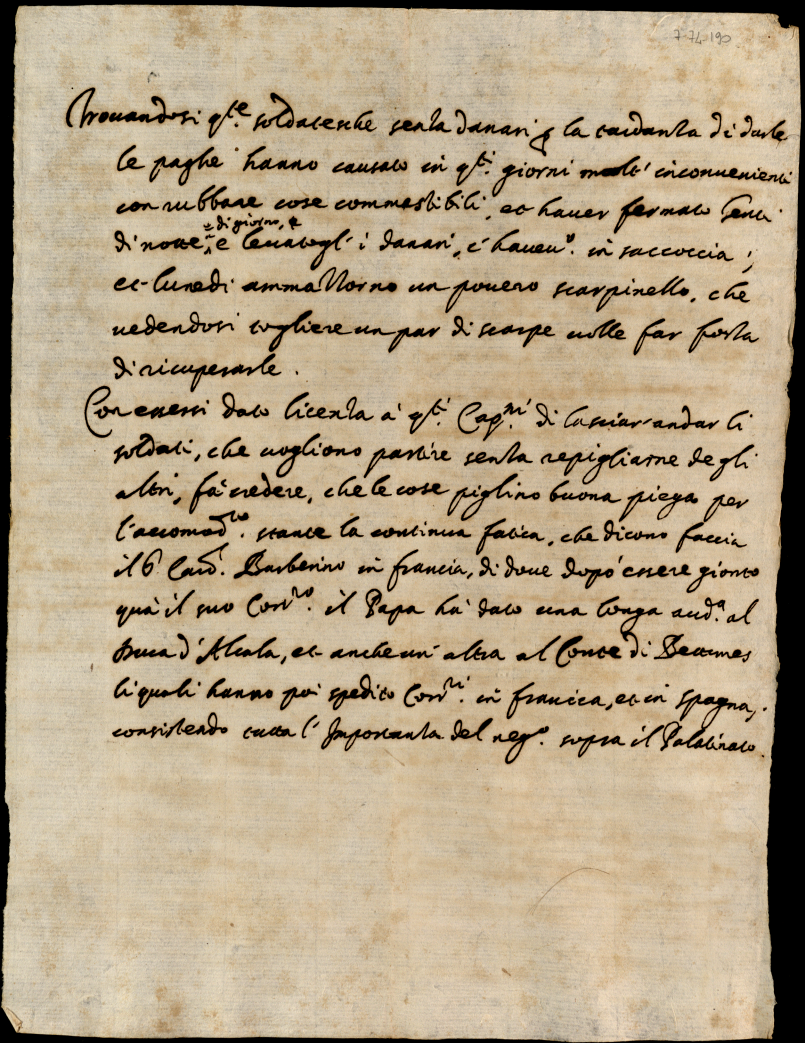 7-74-190
Trouandosi q.te soldatesche senza danari p la tardanza di darle
le paghe hanno causato in q.ti giorni molt' inconuenienti
con rubbare cose commestibili, et hauer fermato genti
di giorno, e
di notte, e leuatogl' i danari, c' haueu.o in saccoccia;
et lunedi ammazzorno un pouero scarpinello, che
uedendosi togliere un par di scarpe uolle far forza
di ricuperarle.
Con essersi dato licenza à q.ti Cap.ni di lasciar andar li
soldati, che uogliono partire senza repigliarne degli
altri, fà credere, che le cose piglino buona piega per
l'accomod.to stante la continua fatica, che dicono faccia
il S. Card. Barberino in francia, di doue dopò essere gionto
quà il suo Corr.ro il Papa hà dato una longa aud.a al
Duca d'Alcala, et anche un' altra al Conte di Bettunes
li quali hanno poi spedito Corr.ri in francia, et in spagna,
consistendo tutta l'Importanza del neg.o sopra il Palatinato.